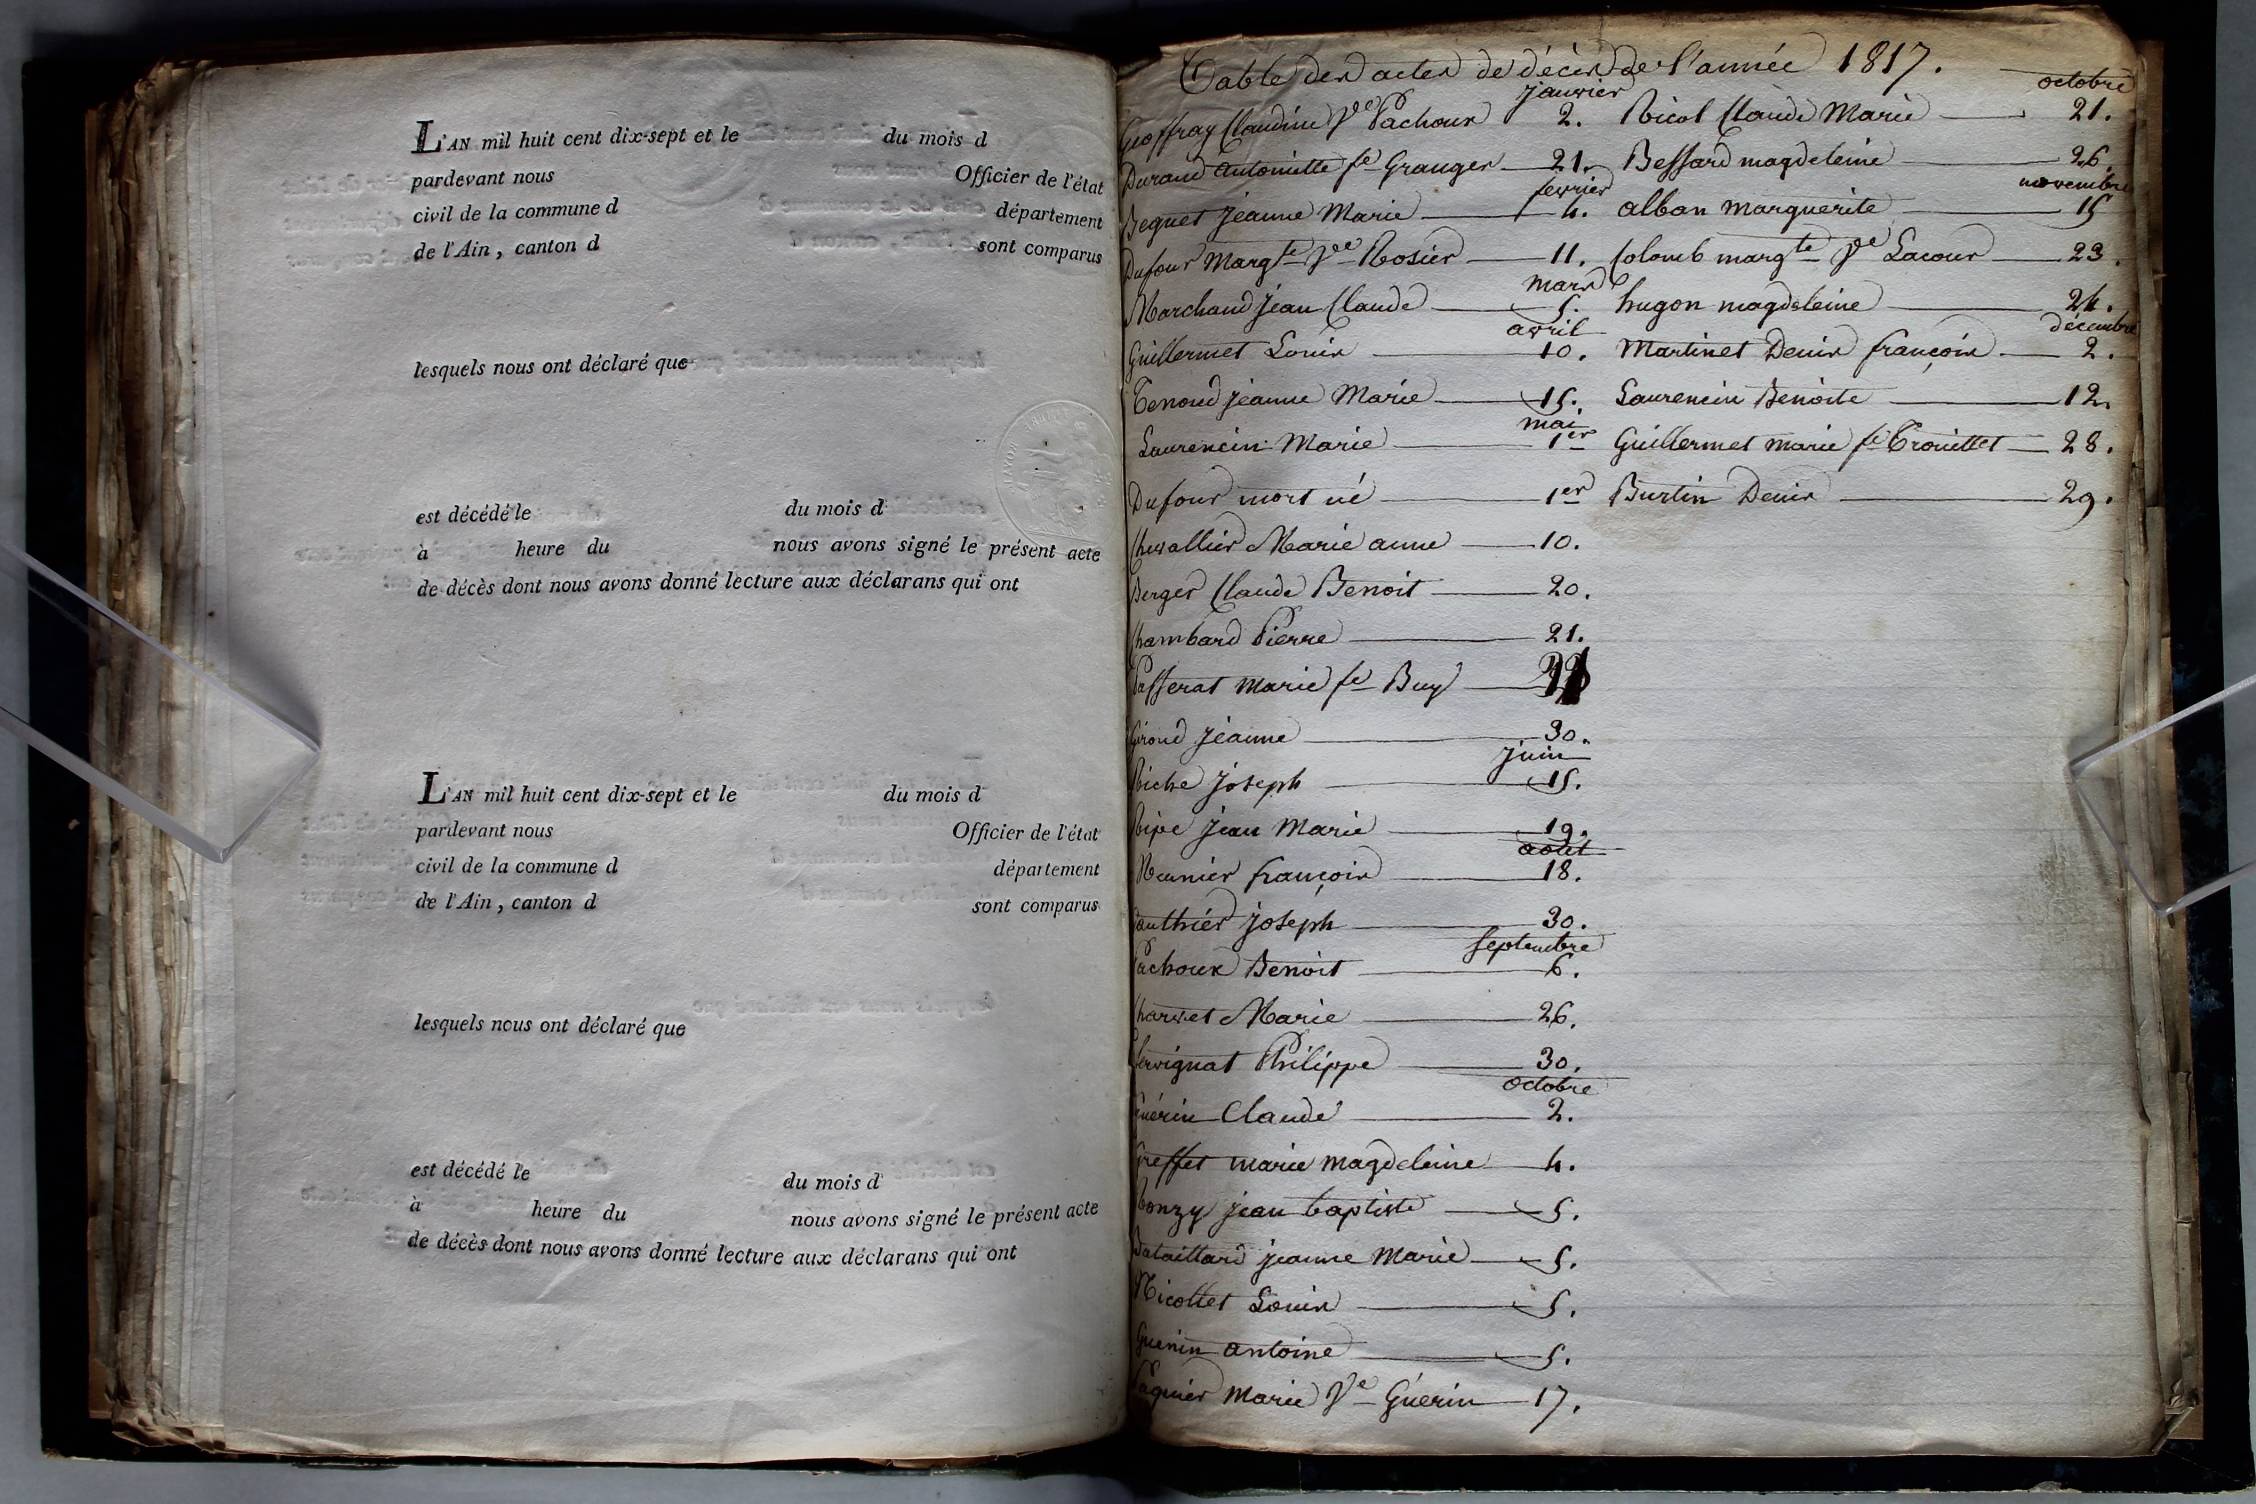 L'AN mil huit cent dix-sept et le du mois d
pardevant nous Officier de l'état
civil de la commune d département
de l'Ain, canton d sont comparus
lesquels nous ont déclaré que
est décédé le du mois d
à heure du nous avons signé le présent acte
de décès dont nous avons donné lecture aux déclarans qui ont
L'AN mil huit cent dix-sept et le du mois d
pardevant nous Officier de l'état
civil de la commune d département
de l'Ain, canton d sont comparus
lesquels nous ont déclaré que
est décédé le du mois d
à heure du nous avons signé le présent acte
de décès dont nous avons donné lecture aux déclarans qui ont
Table des actes de décès de l'année 1817.
janvier
Geoffray Claudine Ve Pachoux 2.
Durand antoinette fe Granger 21.
fevrier
Beguet jeanne Marie 4.
Dufour Margte Ve Rosier 11.
mars
Marchand jean Claude 5.
avril
Guillermet Louis 10.
Tenoud jeanne Marie 15.
mai
Laurencin Marie 1er
Dufour mort né 1er
Chevallier Marie anne 10.
Berger Claude Benoit 20.
Chambard Pierre 21.
Passerat marie fe Buy
Giroud jeanne 30.
juin
Riche joseph 15.
Ripe jean Marie 19.
aout
Meunier françois 18.
Gauthier joseph 30.
septembre
Pachoux Benoit 6.
Charvet Marie 26.
Philippe 30.
octobre
Guérin Claude 2.
Greffet marie magdeleine 4.
Ronzy jean baptiste 5.
Bataillard jeanne Marie 5.
Nicollet Louis 5.
Guenin antoine 5.
Paquier Marie Ve Guerin 17.
octobre
Claude Marie 21.
Bessard magdeleine 26.
novembre
alban marguerite 15
Colomb margte Ve Lacour 23.
hugon magdeleine 24.
décembre
Martinet Denis françois 2.
Laurencin Benoite 12.
Guillermet marie fe Trouillet 28.
Burtin Denis 29.